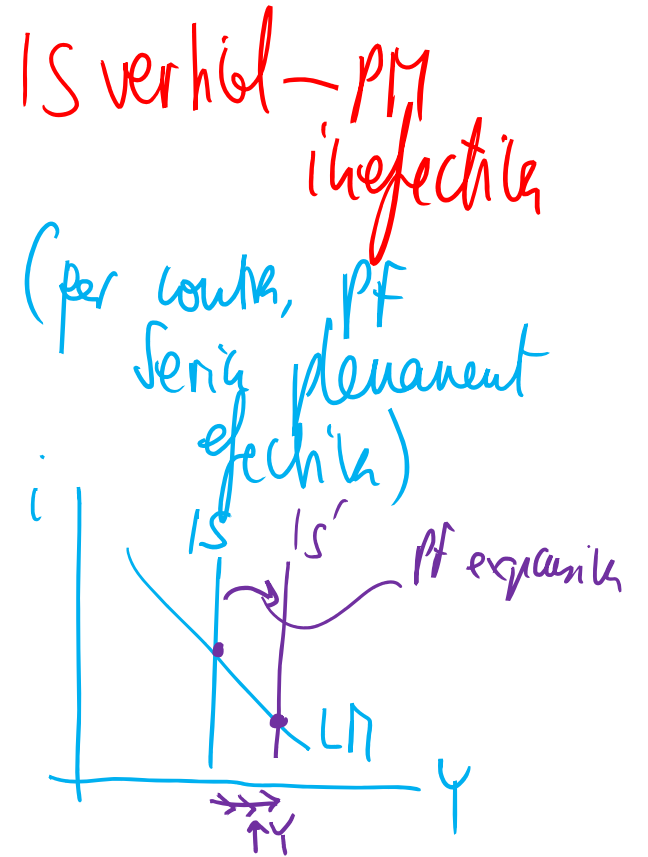 IS vertical – PM
inefectiva
(per contra, PF
seria plenament
efectiva)
i
IS
IS'
PF expansiva
LM
Y
↑Y